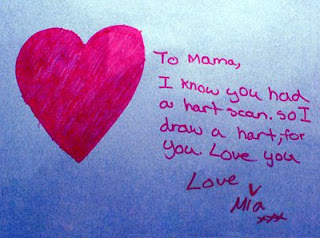 To Mama,
I know you had
a hart scan. so I
draw a hart, for
you. Love you
Love
Mia
xxx